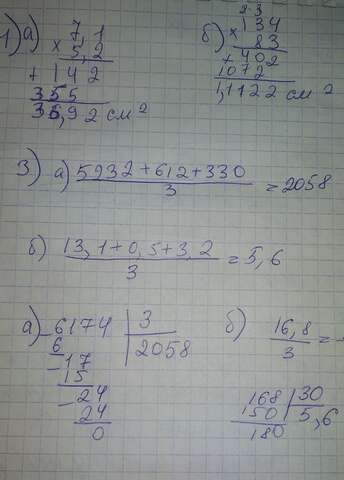 1) а) 7,1
× 5,2
+ 142
355
36,92 см 2
б) 2 3
× 134
83
+ 402
1072
1,1122 см 2
3) а) 5232+612+330 / 3 = 2058
б) 13,1+0,5+3,2 / 3 = 5,6
а) 6174 | 3
6 | 2058
- 17
15
- 24
24
0
б) 16,8 / 3 = -
168 | 30
150 | 5,6
180